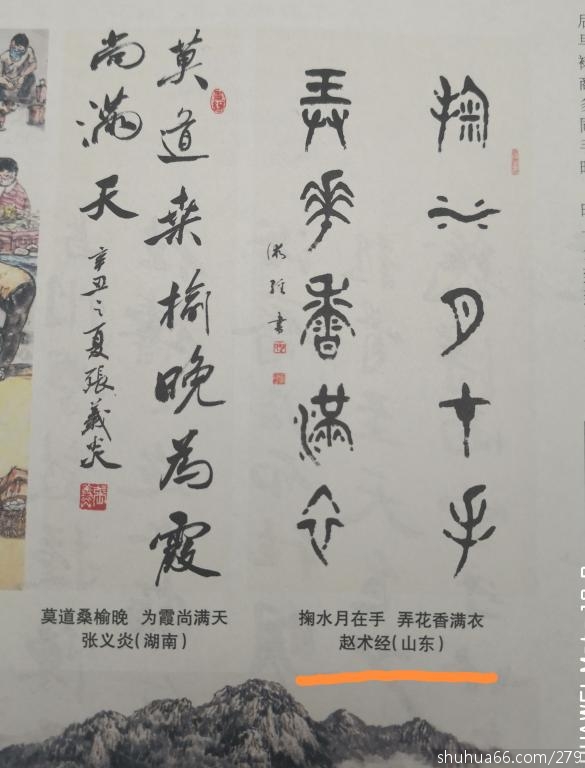 掬水月十手
弄花香满衣
莫道桑榆晚为霞
尚满天
辛丑之夏張義炎
掬水月在手 弄花香满衣
赵术经(山东)
莫道桑榆晚 为霞尚满天
张义炎(湖南)
shuhua66.com/279